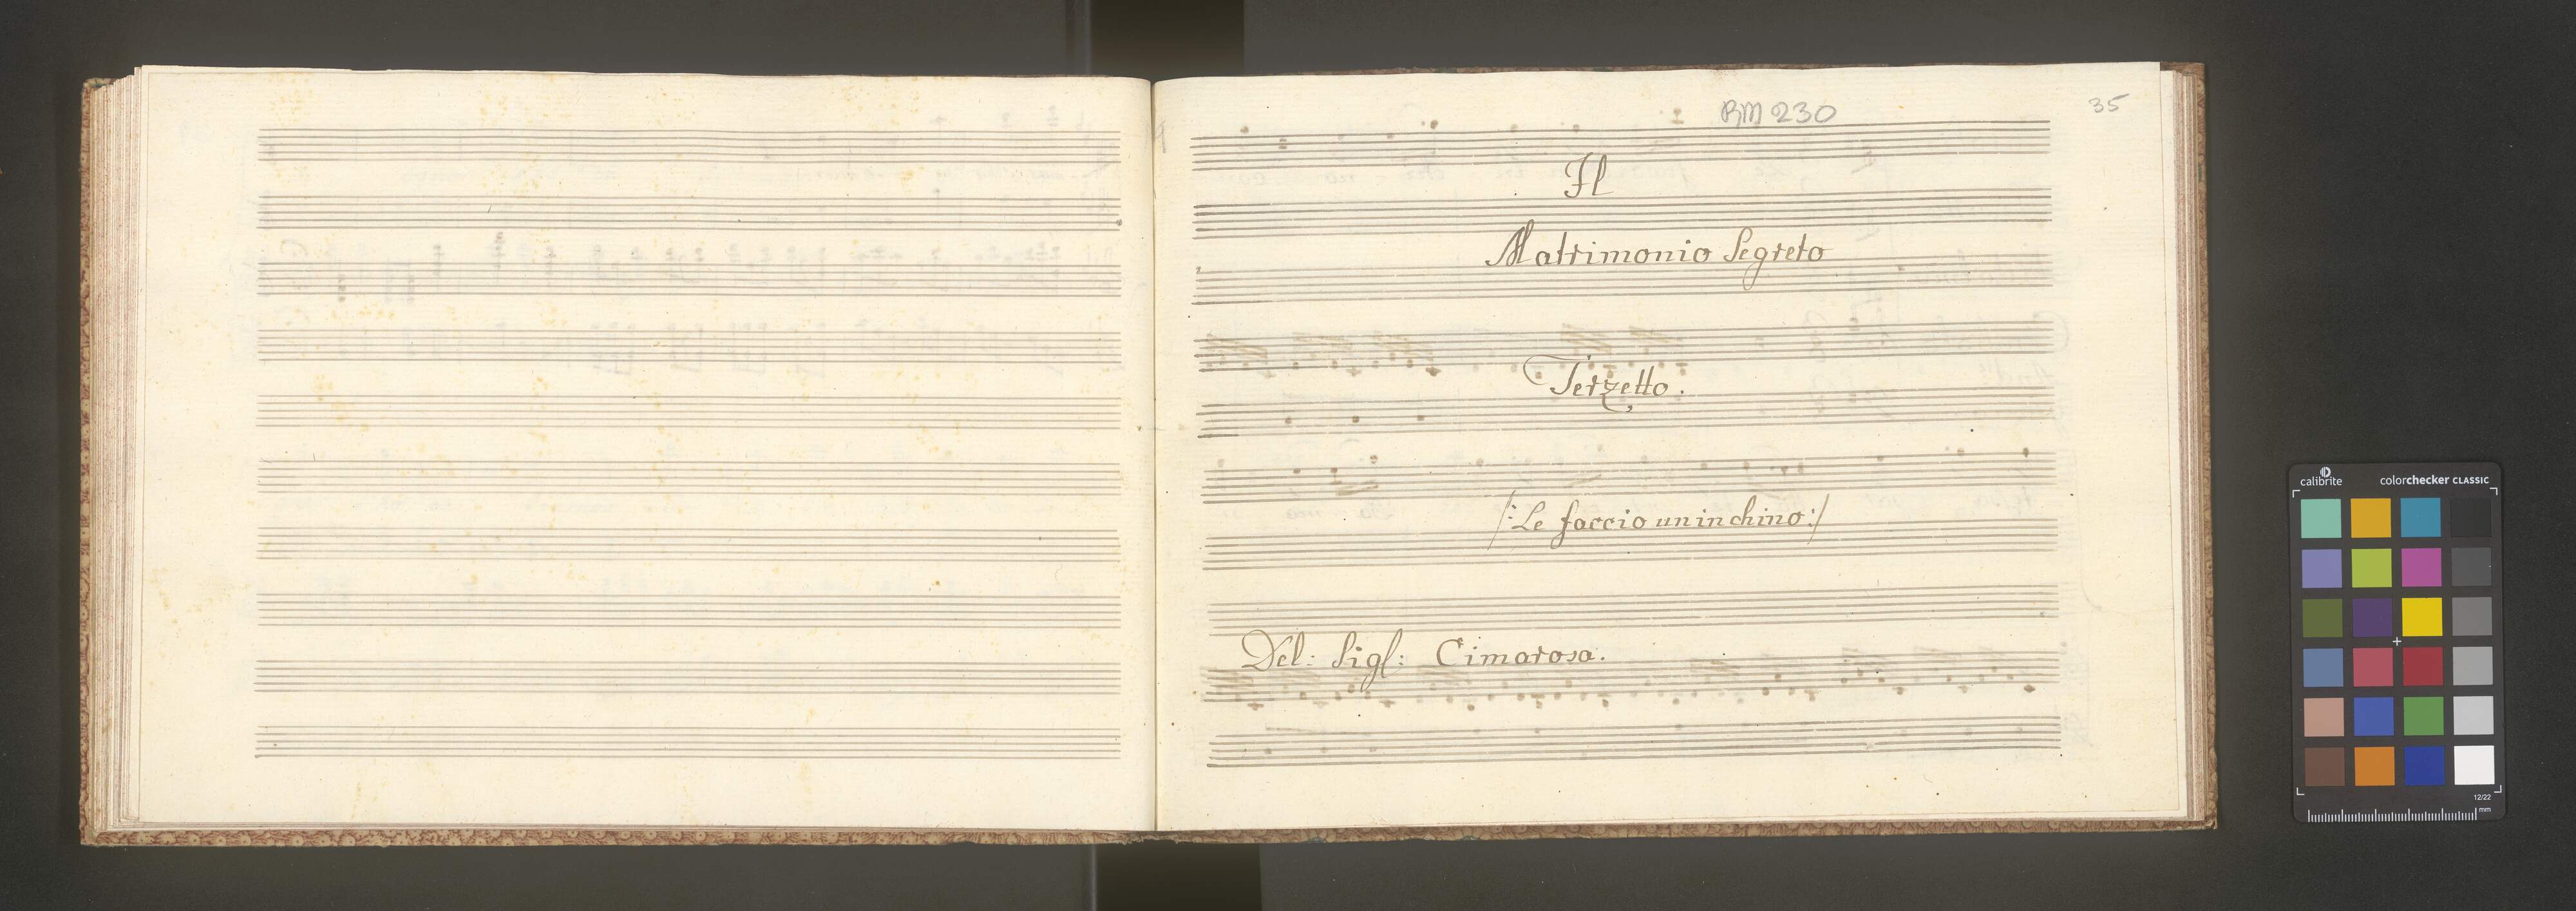 RM 230
35
Il
Matrimonio Segreto
Terzetto.
/: Le faccio un inchino :/
Del: Sigl: Cimarosa.
calibrite
colorchecker CLASSIC
12/22
mm